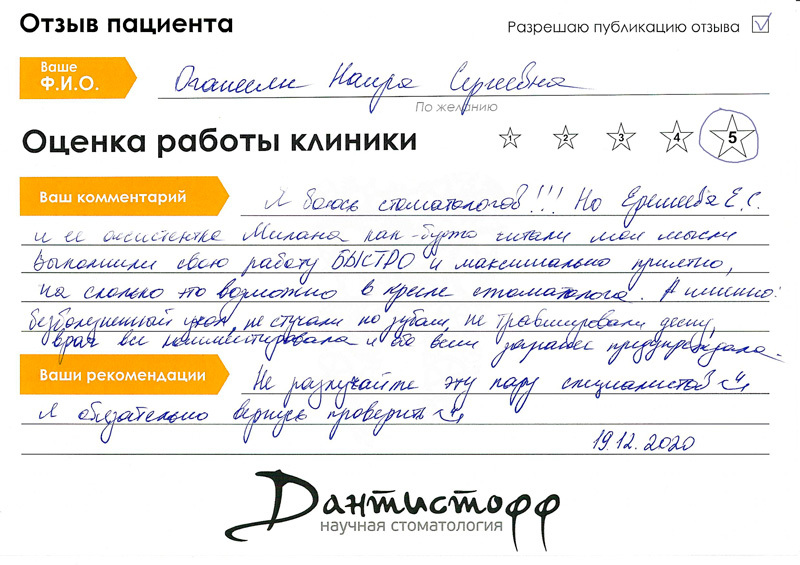 Отзыв пациента
Разрешаю публикацию отзыва
Ваше
Ф.И.О.
Оганесян Наира Сергеевна
По желанию
Оценка работы клиники
1 2 3 4 5
Ваш комментарий
Я боюсь стоматологов!!! Но Ерешеева Е.С.
и ее ассистентка Милана как-будто читали мои мысли
Выполнили свою работу БЫСТРО и максимально приятно,
на сколько это возможно в кресле стоматолога. А именно:
безболезненный укол, не стучали по зубам, не травмировали десну,
врач все комментировала и обо всем заранее предупреждала.
Ваши рекомендации
Не разлучайте эту пару специалистов
Я обязательно вернусь проверить
19.12.2020
Дантистофф
научная стоматология